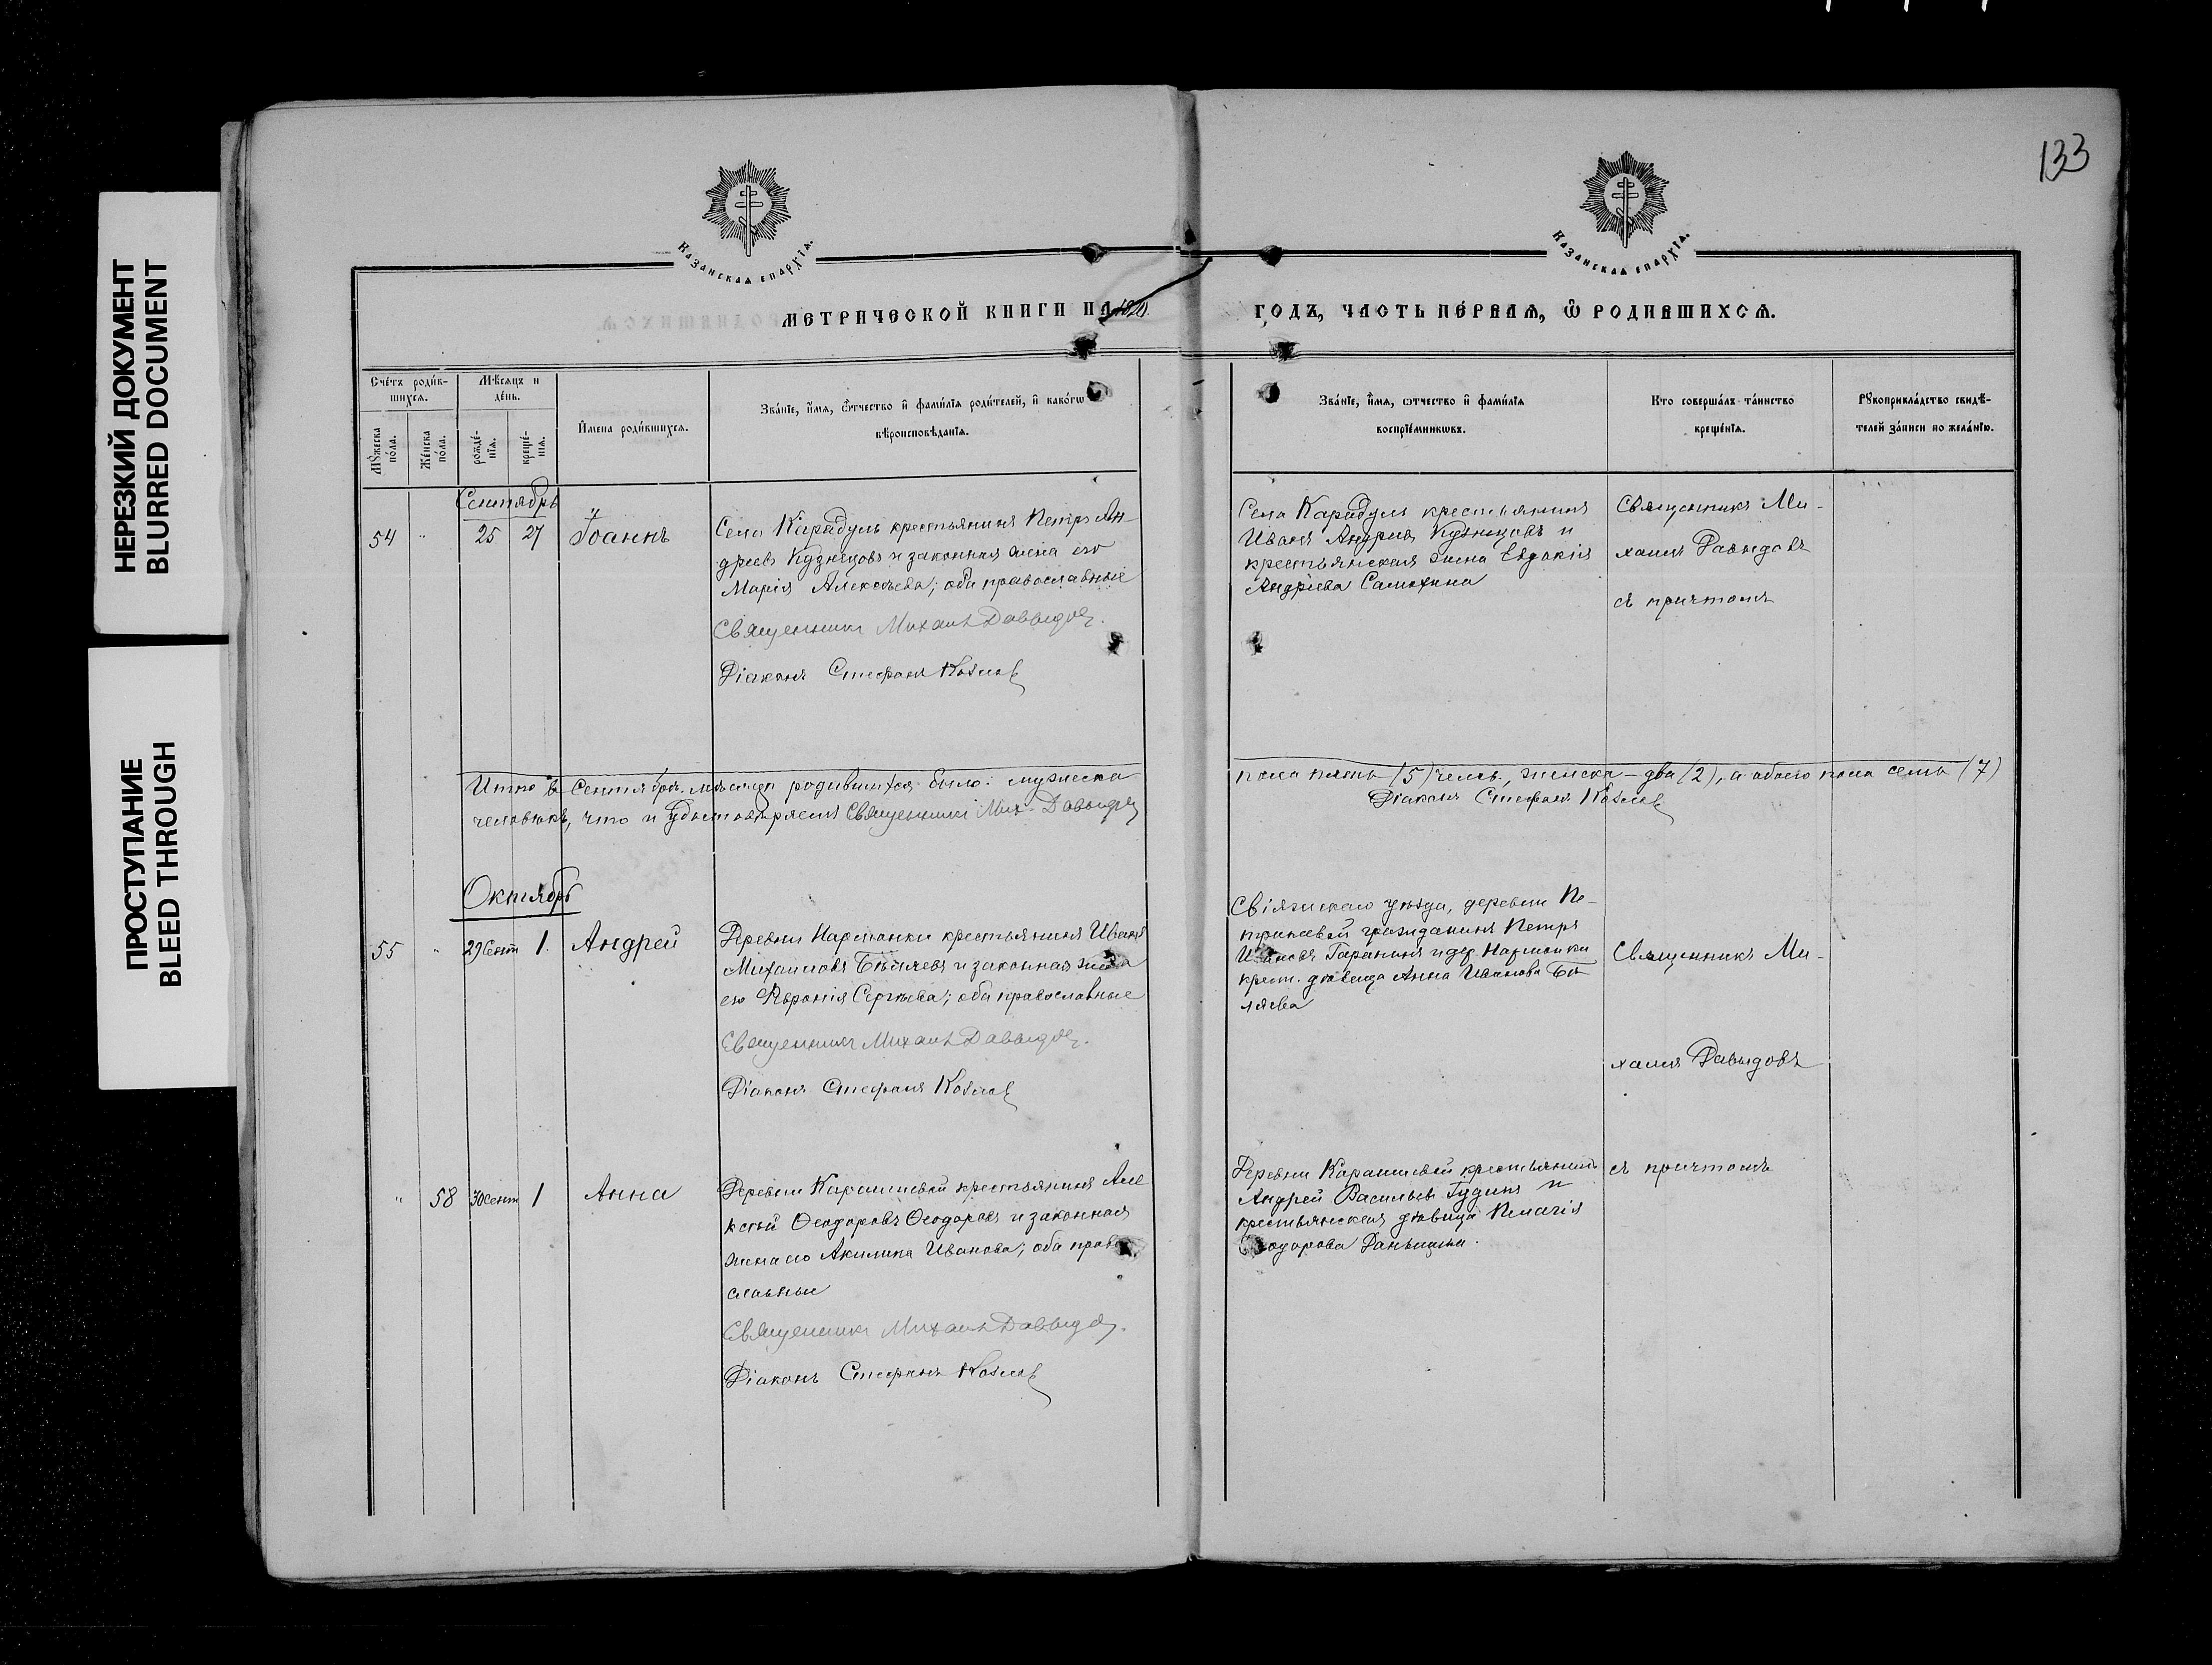 133
НЕРЕЗКИЙ ДОКУМЕНТ
BLURRED DOCUMENT
ПРОСТУПАНИЕ
BLEED THROUGH
Казанская епархїѧ.
Казанская епархїѧ.
МЕТРИЧЕСКОЙ КНИГИ НА
ГОДЪ, ЧАСТЬ ПЕ́РВАѦ, Ѽ РОДИВШИХСѦ.
Сче́тъ роди́в-
шихсѧ.
Мѣ́сѧцъ и
де́нь.
Мꙋ́жеска
по́ла.
Же́нска
по́ла.
рожде́-
нїѧ.
креще́-
нїѧ.
И҆́мена роди́вшихсѧ.
Зва́нїе, и҆́мѧ, ѻ҆́тчество и҆ фами́лїѧ роди́телей, и҆ како́гѡ
вѣроисповѣ́данїѧ.
Зва́нїе, и҆́мѧ, ѻтчество и҆ фами́лїѧ
воспрїе́мникѡвъ.
Кто соверша́лъ та́инство
креще́нїѧ.
Рꙋкоприкла́дство свидѣ́-
телей за́писи по жела́нїю.
Сентябрь
54 " 25 27 Іоаннъ
Села Карадуль крестьянинъ Петръ Ан-
дреевъ Кузнецовъ и законная жена его
Марія Алексѣева; оба православные
Священникъ Михаилъ Давыдовъ.
Діаконъ Стефанъ Козловъ
Села Карадуль крестьянинъ
Иванъ Андреевъ Кузнецовъ и
крестьянская жена Евдокія
Андреева
Священникъ Ми-
хаилъ Давыдовъ
съ причтомъ
Итого в Сентябрѣ мѣсяцѣ родившихся было: мужеска
пола пять (5) челов., женска - два (2), а обоего пола семь (7)
человѣкъ, что и удостовѣряемъ Священникъ Мих. Давыдовъ
Діаконъ Стефанъ Козловъ
Октябрь
55 " 29 Сент 1. Андрей
Деревни Нармонки крестьянинъ Иванъ
Михаиловъ Бѣляевъ и законная жена
его Февронія Сергѣева; оба православные
Священникъ Михаилъ Давыдовъ.
Діаконъ Стефанъ Козловъ
Свіяжскаго уѣзда, деревни
гражданинъ Петръ
Ивановъ Гаранинъ и дер. Нармонки
крест. дѣвица Анна Иванова Бѣ-
ляева
Священникъ Ми-
хаилъ Давыдовъ
" 58 30 Сент 1 Анна
Деревни крестьянинъ Але
ксѣй Ѳеодоровъ Ѳеодоровъ и законная
жена его Акилина Иванова; оба право
славные
Священникъ Михаилъ Давыдовъ.
Діаконъ Стефанъ Козловъ
Деревни крестьянинъ
Андрей Васильевъ Гудинъ и
крестьянская дѣвица Пелагія
Ѳеодорова
съ причтомъ